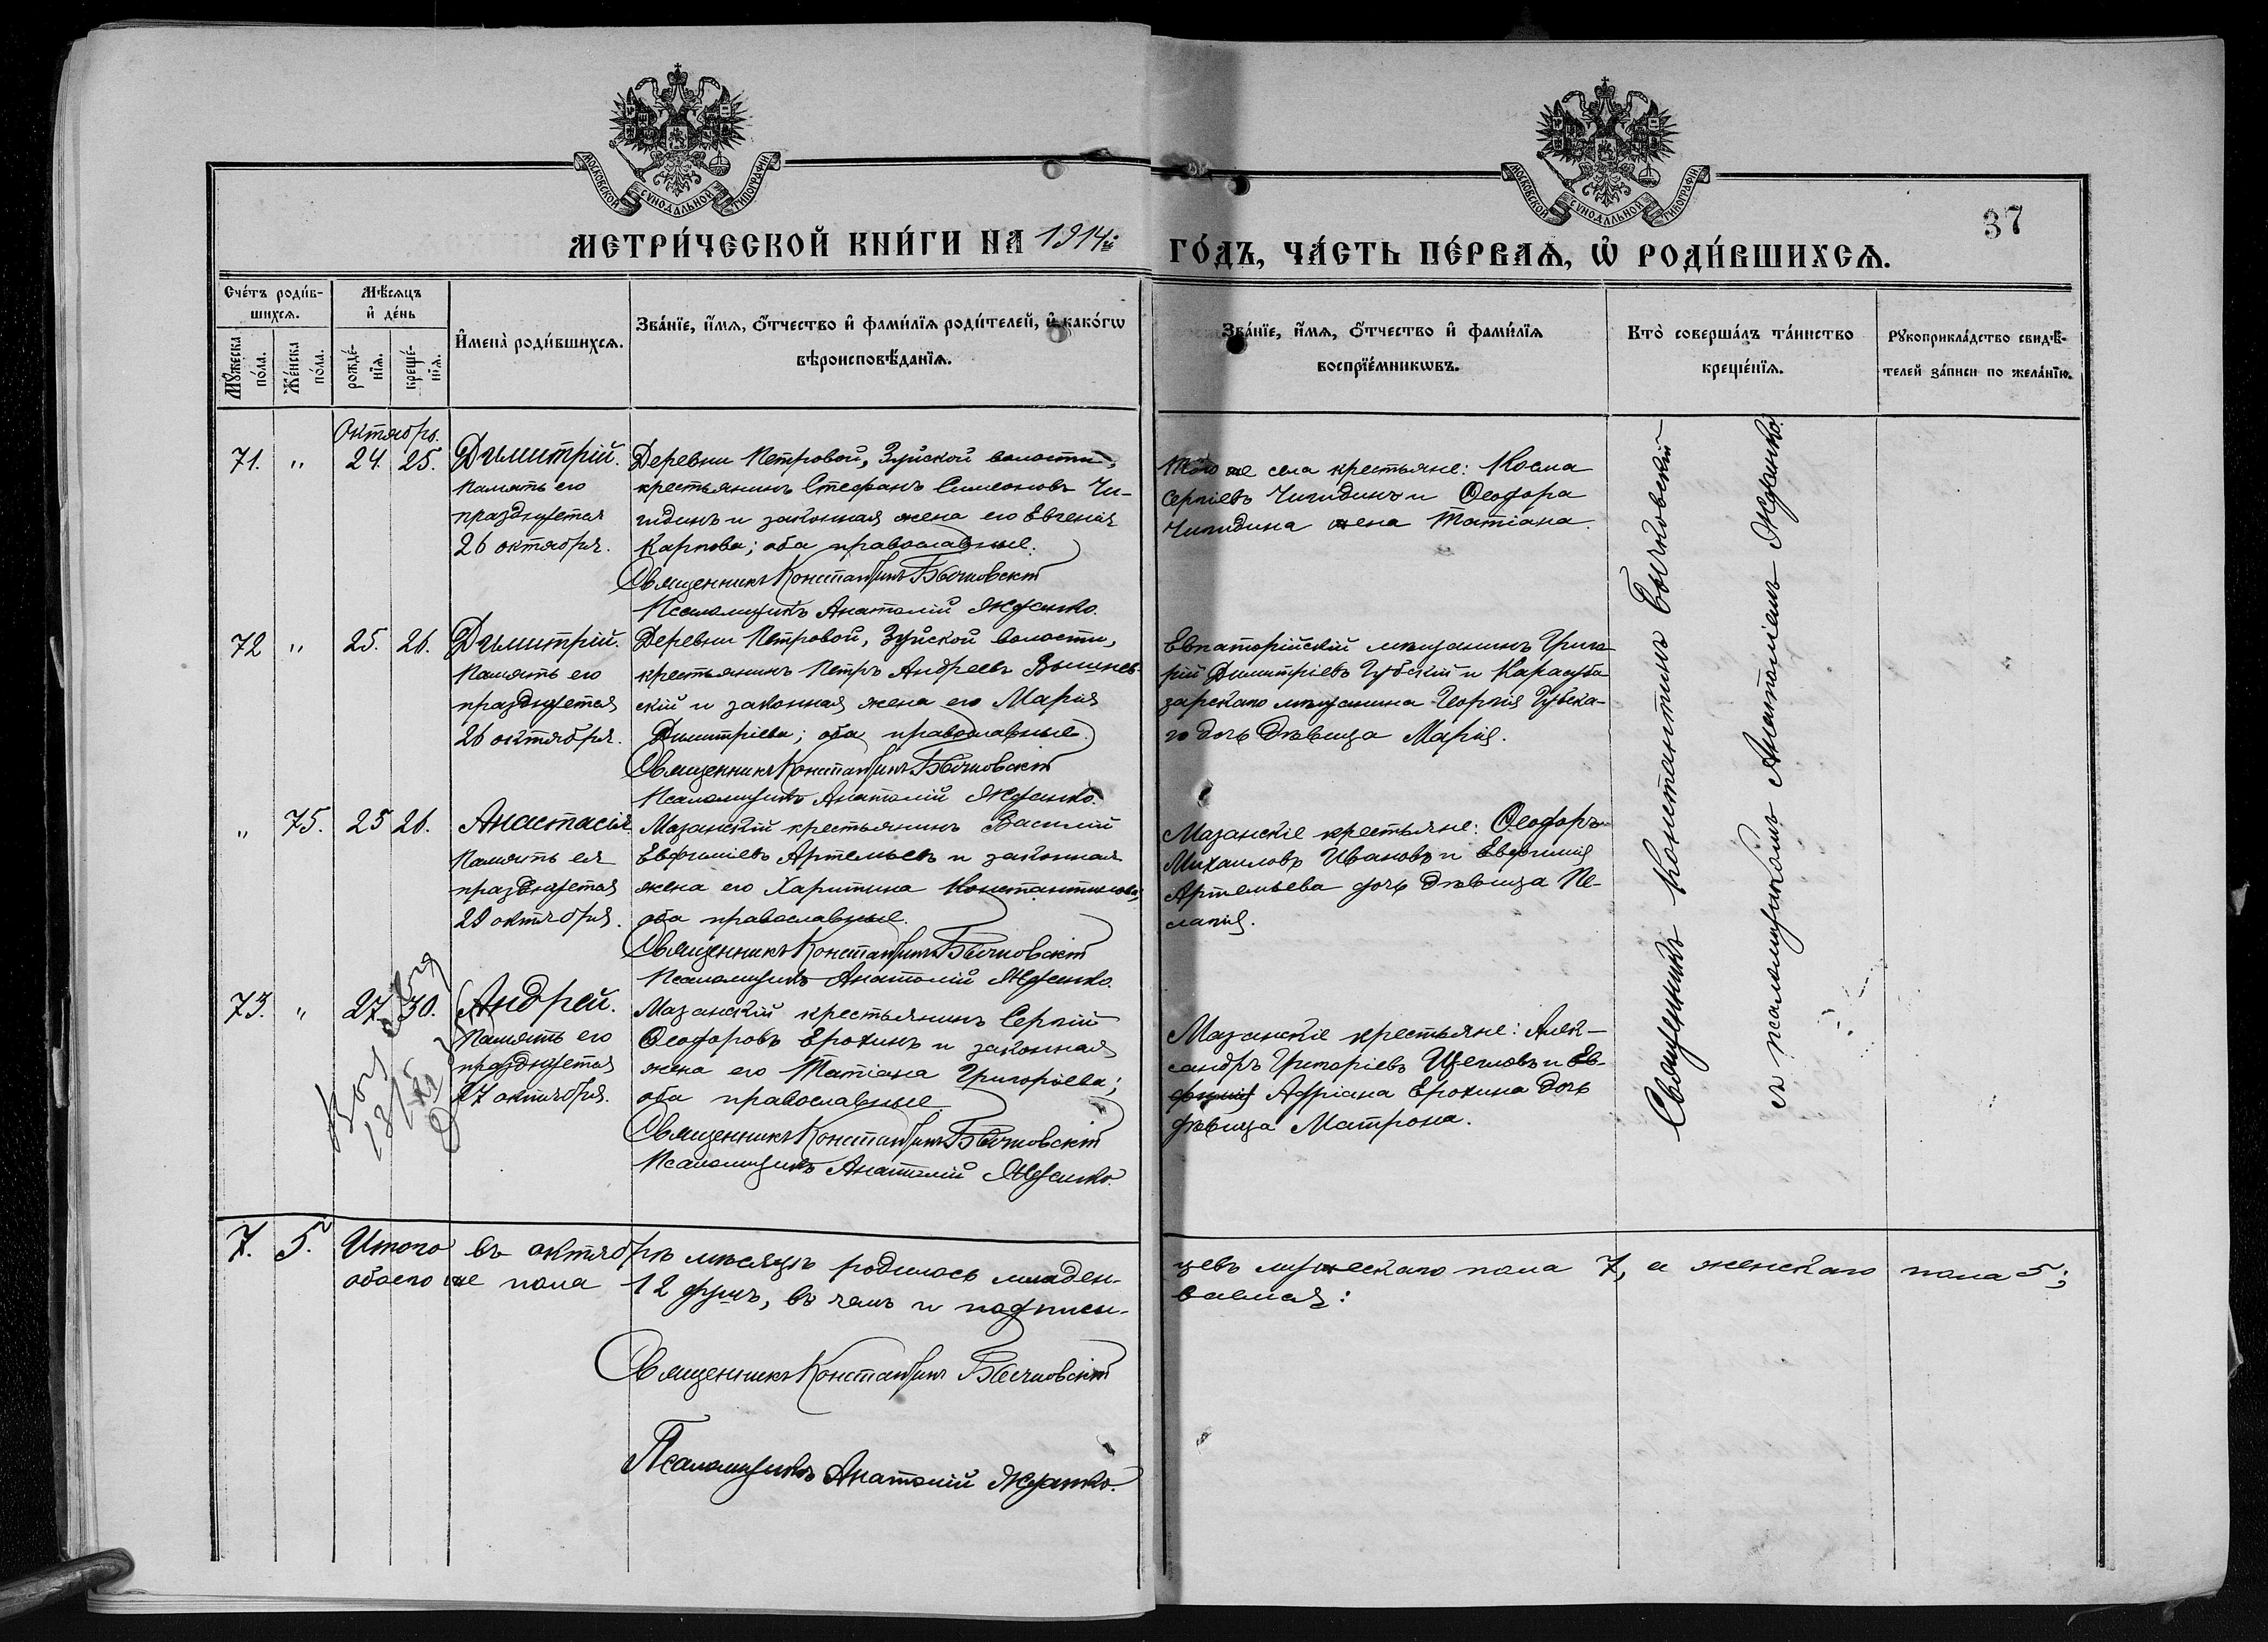 МОСКОВСКОЙ СѴНОДАЛЬНОЙ ТИПОГРАФІИ
МОСКОВСКОЙ СѴНОДАЛЬНОЙ ТИПОГРАФІИ
37
МЕТРИ́ЧЕСКОЙ КНИ́ГИ НА 1914й ГО́ДЪ, ЧА́СТЬ ПЕ́РВАѦ, Ѡ҆ РОДИ́ВШИХСѦ.
Сче́тъ роди́в-
шихсѧ.
Мꙋ́жеска по́ла.
Же́нска по́ла.
Мѣ́сѧцъ
и҆ де́нь
рожде́-
нїѧ.
креще́-
нїѧ.
И҆мена̀ роди́вшихсѧ.
Зва́нїе, и҆́мѧ, ѻ҆́тчество и҆ фами́лїѧ роди́телей, и҆ како́гѡ
вѣроисповѣ́данїѧ.
Зва́нїе, и҆́мѧ, ѻ҆́тчество и҆ фами́лїѧ
воспрїе́мникѡвъ.
Кто̀ соверша́лъ та́инство
креще́нїѧ.
Рꙋкоприкла́дство свидѣ́-
телей за́писи по жела́нїю.
Октябрь.
71. " 24. 25. Димитрій.
Память его
празднуется
26 октября.
Деревни Петровой, Зуйской волости,
крестьянинъ Стефанъ Симеоновъ Чи-
гидинъ и законная жена его Евгенія
Карпова; оба православные.
Священникъ Константинъ Бычковскій
Псаломщикъ Анатолій Жданко.
Того же села крестьяне: Косма
Сергіевъ Чигидинъ и Ѳеофора
Чигидина жена Татіана.
72 " 25. 26. Димитрій.
Память его
празднуется
26 октября.
Деревни Петровой, Зуйской волости,
крестьянинъ Петръ Андреевъ Вышнев-
скій и законная жена его Марія
Димитріева; оба православные.
Священникъ Константинъ Бычковскій
Псаломщикъ Анатолій Жданко.
Евпаторійскій мѣщанинъ Григо-
рій Димитріевъ Губскій и Карасуба-
зарскаго мѣщанина Георгія Губска-
го дочь дѣвица Марія.
" 75. 25 26. Анастасія.
Память ея
празднуется
29 октября.
Мазанскій крестьянинъ Василій
Евфиміевъ Артемьевъ и законная
жена его Харитина Константинова;
оба православные.
Священникъ Константинъ Бычковскій
Псаломщикъ Анатолій Жданко.
Мазанскіе крестьяне: Ѳеодоръ
Михаиловъ Ивановъ и Евфимія
Артемьева дочь дѣвица Пе-
лагія.
73. " 27. 30. Андрей.
Память его
празднуется
27 октября.
Мазанскій крестьянинъ Сергій
Ѳеодоровъ Ерохинъ и законная
жена его Татіана Григоріева;
оба православные.
Священникъ Константинъ Бычковскій
Псаломщикъ Анатолій Жданко.
Мазанскіе крестьяне: Алек-
сандръ Григоріевъ Щегловъ и Ев-
фимія Адріана Ерохина дочь
дѣвица Матрона.
Священникъ Константинъ Бычковскій
съ псаломщикомъ Анатоліемъ Жданко.
7. 5. Итого въ октябрѣ мѣсяцѣ родилось младен-
цевъ мужескаго пола 7, а женскаго пола 5;
обоего же пола 12 душъ, въ чемъ и подписы-
ваемся:
Священникъ Константинъ Бычковскій
Псаломщикъ Анатолій Жданко.